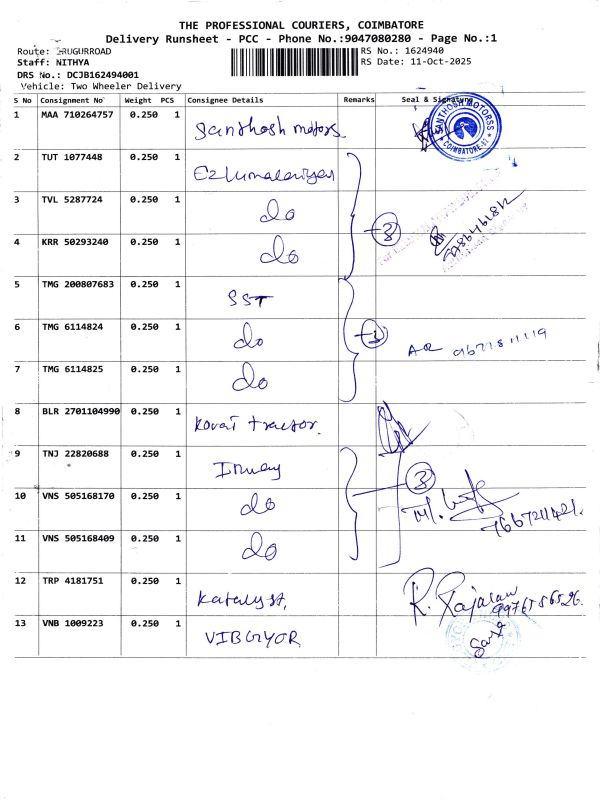 THE PROFESSIONAL COURIERS, COIMBATORE
Delivery Runsheet - PCC - Phone No.:9047080280 - Page No.:1
Route: IRUGURROAD
RS No.: 1624940
Staff: NITHYA
RS Date: 11-Oct-2025
DRS No.: DCJB162494001
Vehicle: Two Wheeler Delivery
S No Consignment No Weight PCS Consignee Details Remarks Seal & Signature
1 MAA 710264757 0.250 1 Santhosh motors. SANTHOSH MOTORSS COIMBATORE
2 TUT 1077448 0.250 1
3 TVL 5287724 0.250 1 do 3
4 KRR 50293240 0.250 1 do
5 TMG 200807683 0.250 1 SST
6 TMG 6114824 0.250 1 do
7 TMG 6114825 0.250 1 do
8 BLR 2701104990 0.250 1 Kovai tractor.
9 TNJ 22820688 0.250 1 3
10 VNS 505168170 0.250 1 do
11 VNS 505168409 0.250 1 do 7667211421.
12 TRP 4181751 0.250 1 Katalyst, R. Rajaran 9976586526.
13 VNB 1009223 0.250 1 VIBGYOR